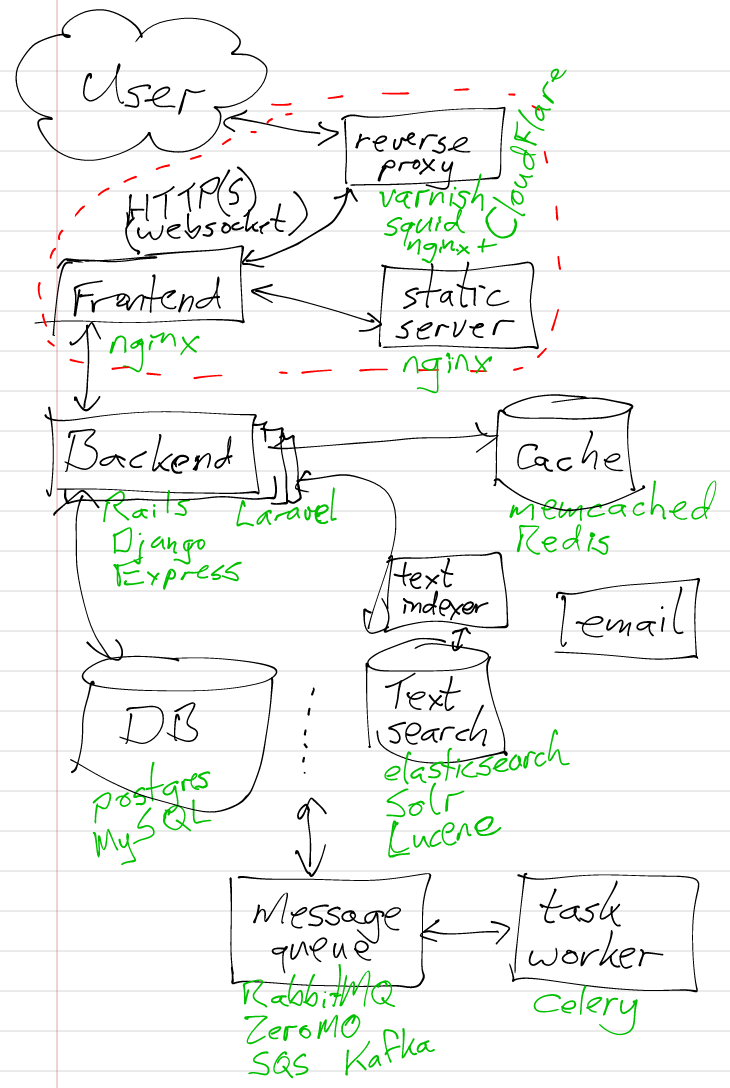 User
reverse
proxy
varnish
squid
nginx+
CloudFlare
HTTP(S)
(websocket)
Frontend
nginx
static
server
nginx
Backend
Rails
Django
Express
Laravel
Cache
memcached
Redis
text
indexer
email
DB
postgres
MySQL
Text
search
elasticsearch
Solr
Lucene
Message
queue
RabbitMQ
ZeroMQ
SQS Kafka
task
worker
Celery